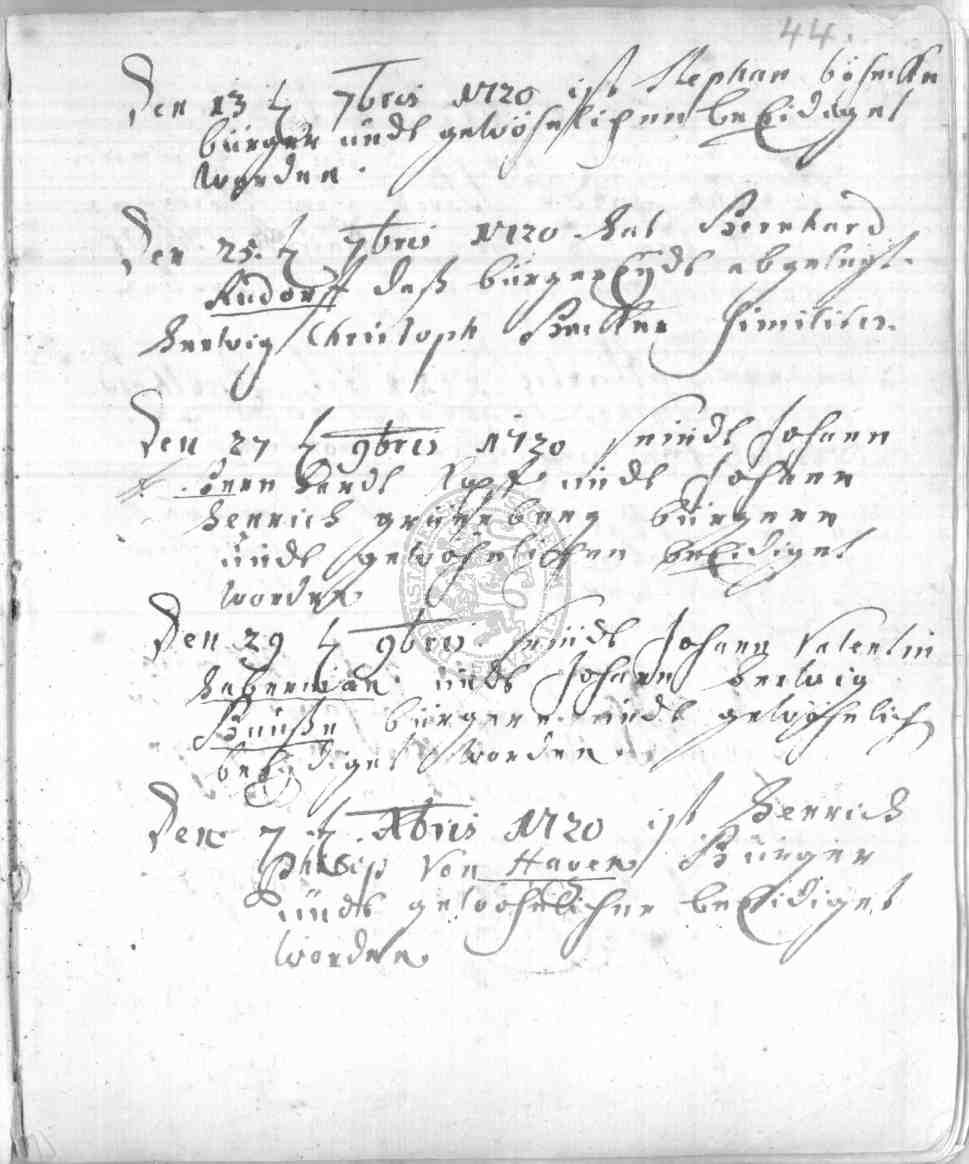 44.
Den 13 t 7bris 1720 ist Stephan
bürger undt gewöhnlichen beeidiget
worden.
Den 25. t 7bris 1720 hat Bernhard
Rudorff daß bürger Eydt abgelegt.
Hertwig Christoph Becker similiter.
Den 27 t 9bris 1720 seindt Johann
Bernhardt Kopf undt Johann
Henrich grüneberg bürgere
undt gewöhnlichen beeidiget
worden
Den 29 t 9bris seindt Johann Valentin
Haberman undt Johann Hertwig
bürgere undt gewöhnlich
beeydiget worden.
Den 7 t Xbris 1720 ist Henrich
Philip Von Haven Bürger
undt gewöhnlicher beeidiget
worden.